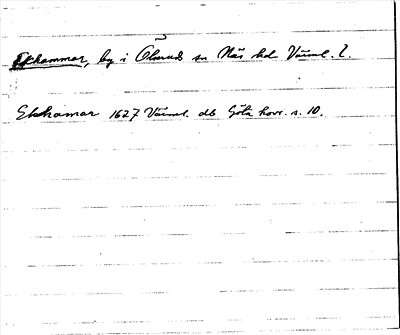 Ekhammar, by i Ölseruds sn Näs hd Värml. l.
Ekhamar 1627 Värml. db Göta hovr. s. 10.